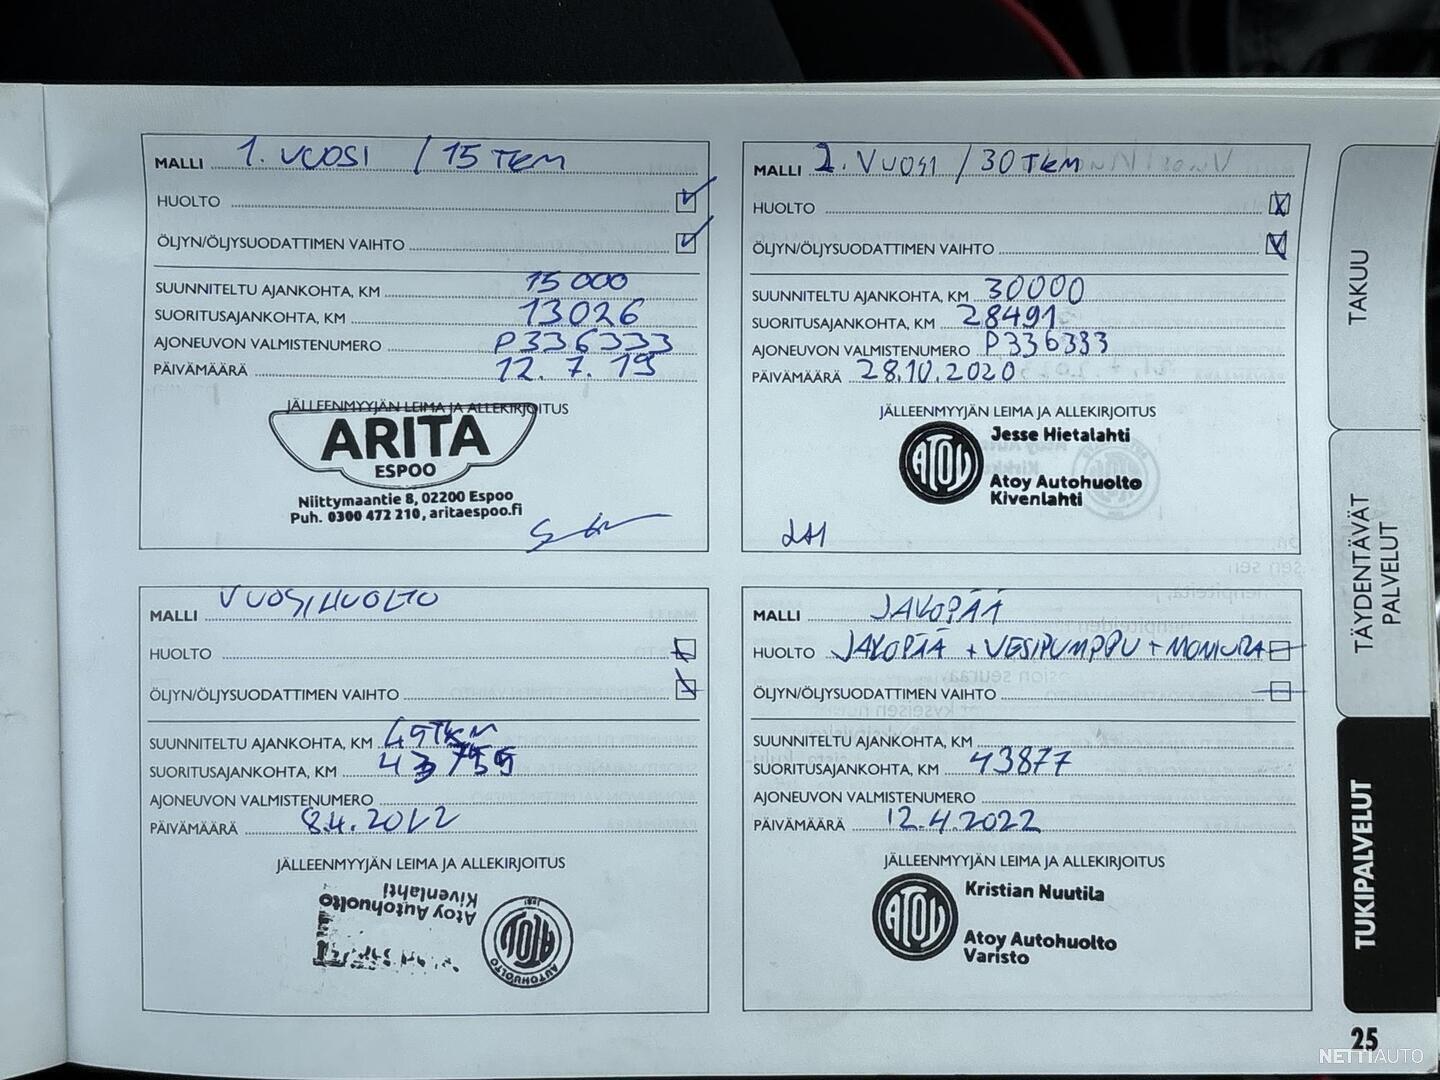 MALLI 1. VUOSI / 15 TKM
HUOLTO
ÖLJYN/ÖLJYSUODATTIMEN VAIHTO
SUUNNITELTU AJANKOHTA, KM 15 000
SUORITUSAJANKOHTA, KM 13026
AJONEUVON VALMISTENUMERO P336333
PÄIVÄMÄÄRÄ 12. 7. 19
JÄLLEENMYYJÄN LEIMA JA ALLEKIRJOITUS
ARITA
ESPOO
Niittymaantie 8, 02200 Espoo
Puh. 0300 472 210, aritaespoo.fi
MALLI 2. VUOSI / 30 TKM
HUOLTO
ÖLJYN/ÖLJYSUODATTIMEN VAIHTO
SUUNNITELTU AJANKOHTA, KM 30000
SUORITUSAJANKOHTA, KM 28491
AJONEUVON VALMISTENUMERO P336333
PÄIVÄMÄÄRÄ 28.10.2020
JÄLLEENMYYJÄN LEIMA JA ALLEKIRJOITUS
ATOY
Jesse Hietalahti
Atoy Autohuolto
Kivenlahti
MALLI VUOSIHUOLTO
HUOLTO
ÖLJYN/ÖLJYSUODATTIMEN VAIHTO
SUUNNITELTU AJANKOHTA, KM 45TKM
SUORITUSAJANKOHTA, KM 43755
AJONEUVON VALMISTENUMERO
PÄIVÄMÄÄRÄ 8.4.2022
JÄLLEENMYYJÄN LEIMA JA ALLEKIRJOITUS
Atoy Autohuolto
Kivenlahti
ATOY
AUTOHUOLTO
MALLI JAKOPÄÄ
HUOLTO JAKOPÄÄ + VESIPUMPPU + MONIURA
ÖLJYN/ÖLJYSUODATTIMEN VAIHTO
SUUNNITELTU AJANKOHTA, KM
SUORITUSAJANKOHTA, KM 43877
AJONEUVON VALMISTENUMERO
PÄIVÄMÄÄRÄ 12.4.2022
JÄLLEENMYYJÄN LEIMA JA ALLEKIRJOITUS
ATOY
Kristian Nuutila
Atoy Autohuolto
Varisto
TAKUU
TÄYDENTÄVÄT
PALVELUT
TUKIPALVELUT
25
NETTIAUTO